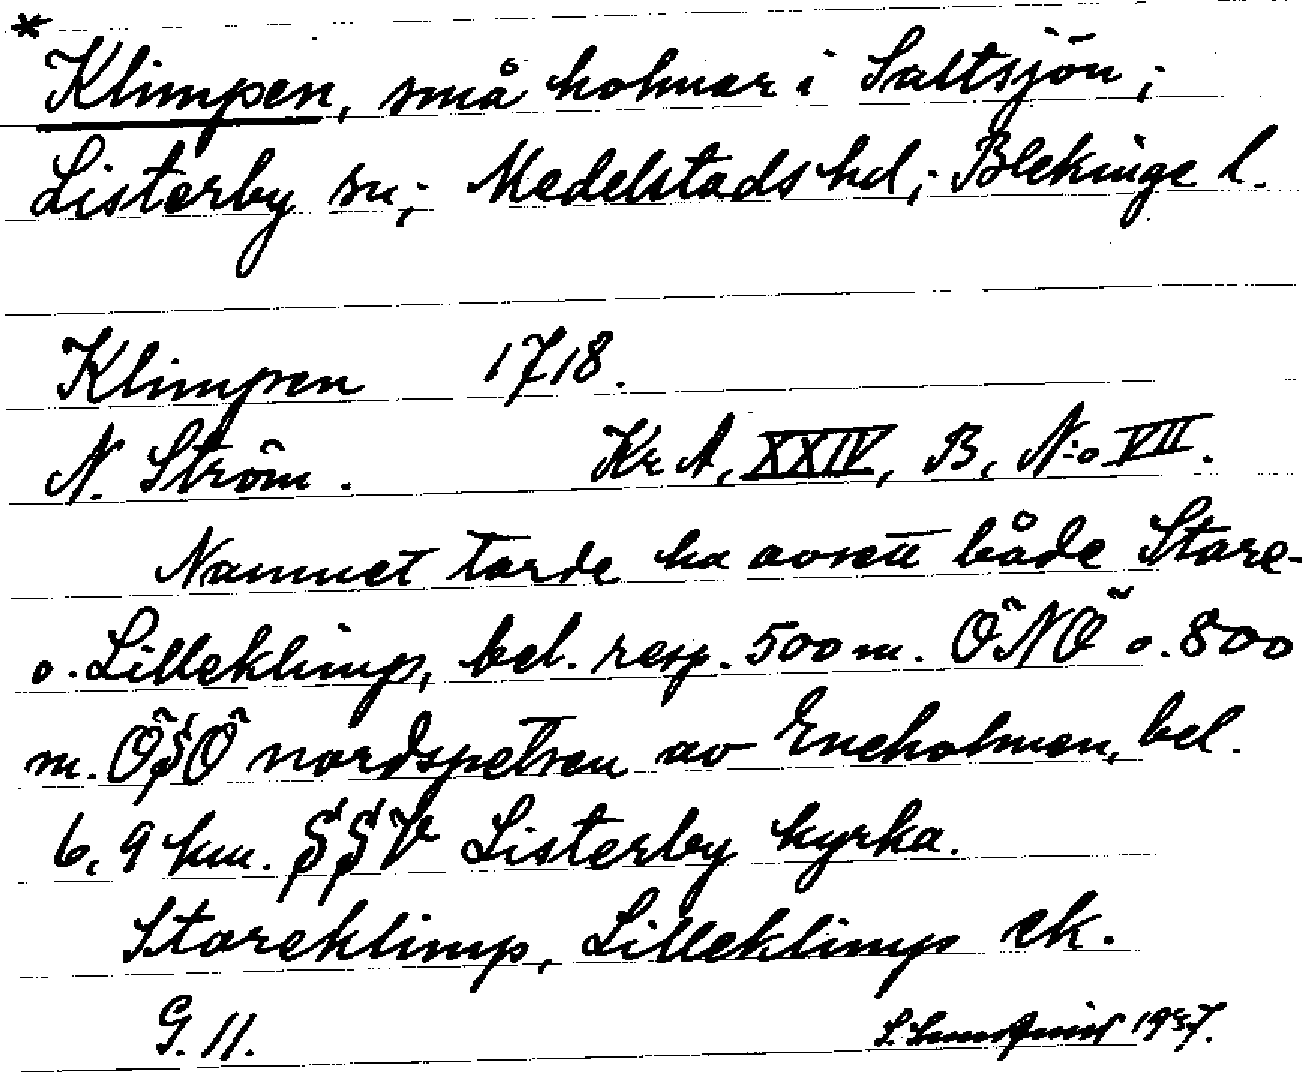 * Klimpen, små holmar i Saltsjön;
Listerby sn; Medelstads hd; Blekinge l.
Klimpen 1718.
N. Ström. KrA, XXIV, B, N:o VII.
Namnet torde ha avsett både Store-
o. Lilleklimp, bel. resp. 500 m. ÖNÖ o. 800
m. ÖSÖ nordspetsen av Eneholmen, bel.
6,9 km. SSV Listerby kyrka.
Storeklimp, Lilleklimp ek.
G. 11. S. Lundqvist 1937.